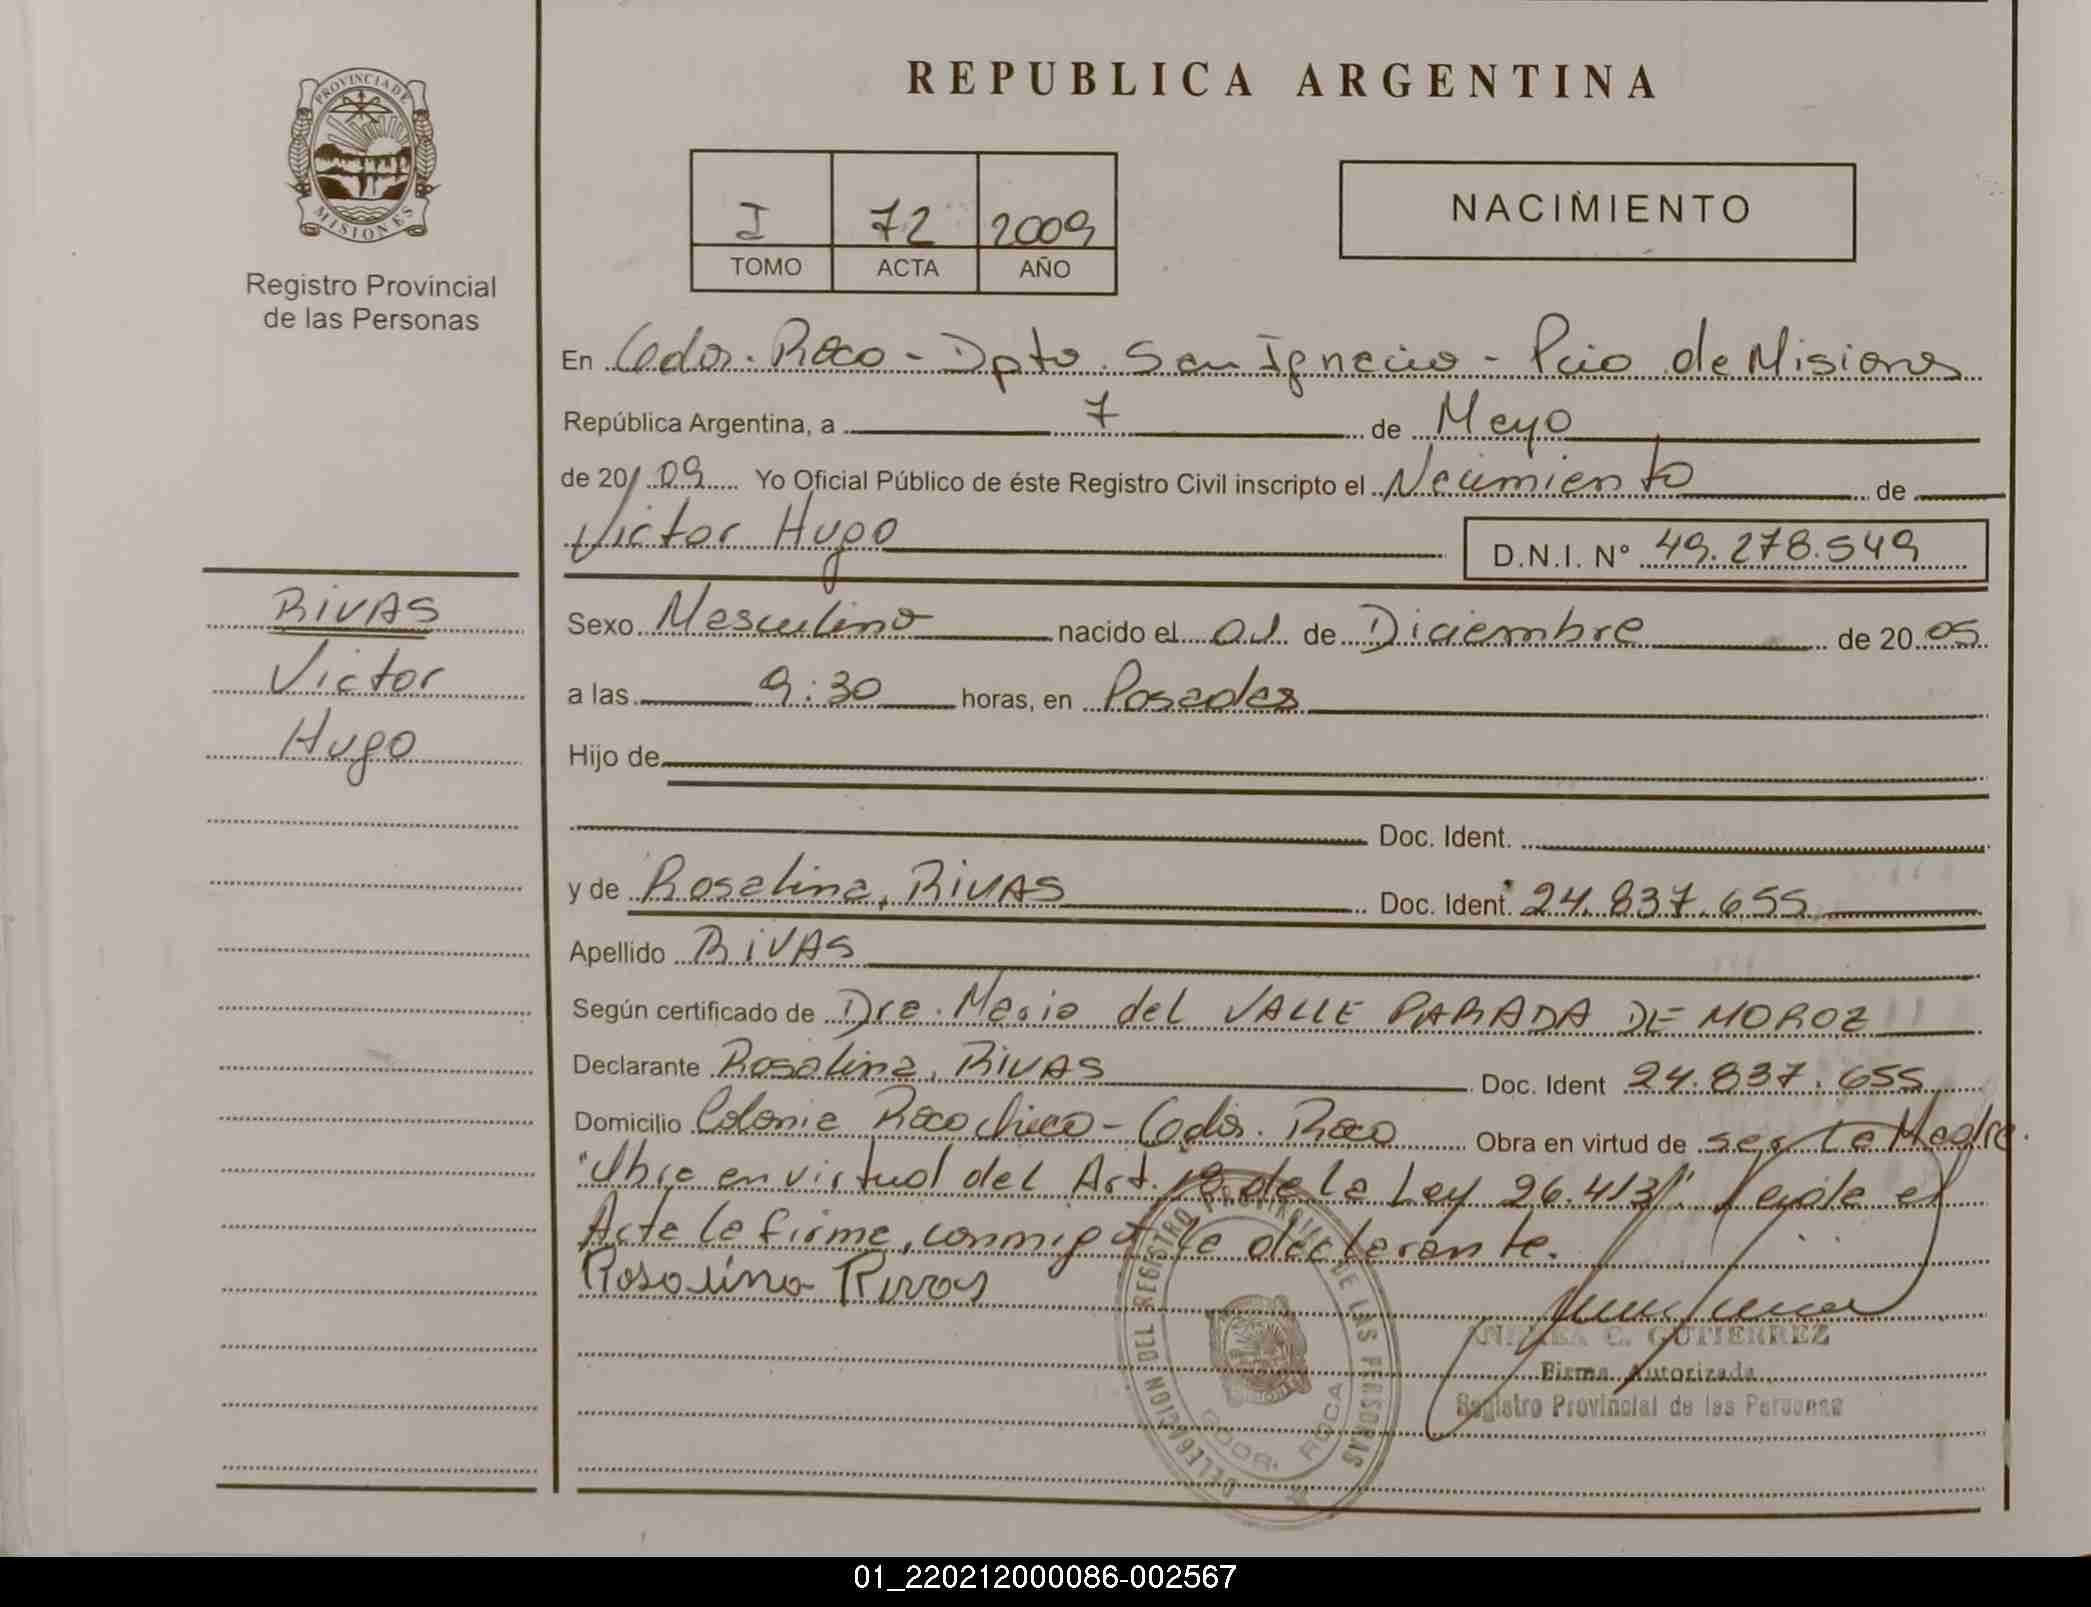 PROVINCIA DE
MISIONES
Registro Provincial
de las Personas
REPUBLICA ARGENTINA
I 72 2009
TOMO ACTA AÑO
NACIMIENTO
En Gdor. Roca - Dpto. San Ignacio - Pcia de Misiones
República Argentina, a 7 de Mayo
de 20/09 Yo Oficial Público de éste Registro Civil inscripto el Nacimiento de
Victor Hugo D.N.I. Nº 49.278.549
RIVAS
Victor
Hugo
Sexo Masculino nacido el 01 de Diciembre de 2005
a las 9:30 horas, en Posadas
Hijo de
Doc. Ident.
y de Rosalina, RIVAS Doc. Ident. 24.837.655
Apellido RIVAS
Según certificado de Dra. Maria del VALLE PARADA DE MOROZ
Declarante Rosalina, RIVAS Doc. Ident 24.837.655
Domicilio Colonia Roca chica - Gdor. Roca Obra en virtud de ser la Madre.
"Obra en virtud del Art. de la Ley 26.413". Leida el
Acta la firma, conmigo la declarante.
Rosalina Rivas
DELEGACION DEL REGISTRO PROVINCIAL DE LAS PERSONAS
GDOR. ROCA
ANDREA C. GUTIERREZ
Firma Autorizada
Registro Provincial de las Personas
01_220212000086-002567